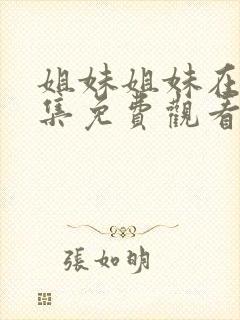 姐妹姐妹在
集免費觀看
張如明